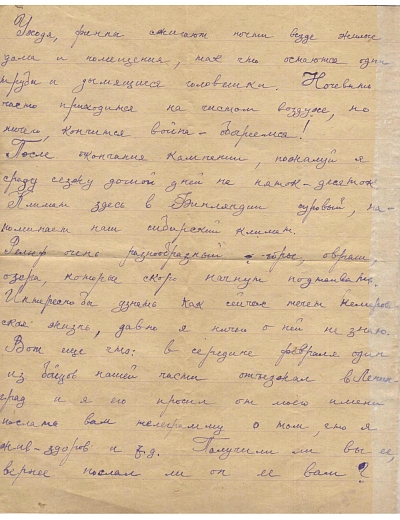 Уходя, финны сжигают почти везде жилые
дома и помещения, так что остаются одни
трубы и дымящиеся головешки. Ночевать
часто приходится на чистом воздухе, но
ничего, кончится война –!
После окончания кампании, пожалуй я
сразу съезжу домой дней на пяток-десяток
Климат здесь в Финляндии суровый, на-
поминает наш сибирский климат.
Рельеф очень разнообразный - горы, овраги,
озера, которые скоро начнут подтаивать.
Интересно бы узнать как сейчас течет кемеров-
ская жизнь, давно я ничего о ней не знаю.
Вот еще что: в середине февраля один
из бойцов нашей части отъезжал в Ленин-
град и я его просил от моего имени
послать вам телеграмму о том, что я
жив-здоров и т.д. Получили ли вы ее,
вернее послал ли он ее вам?